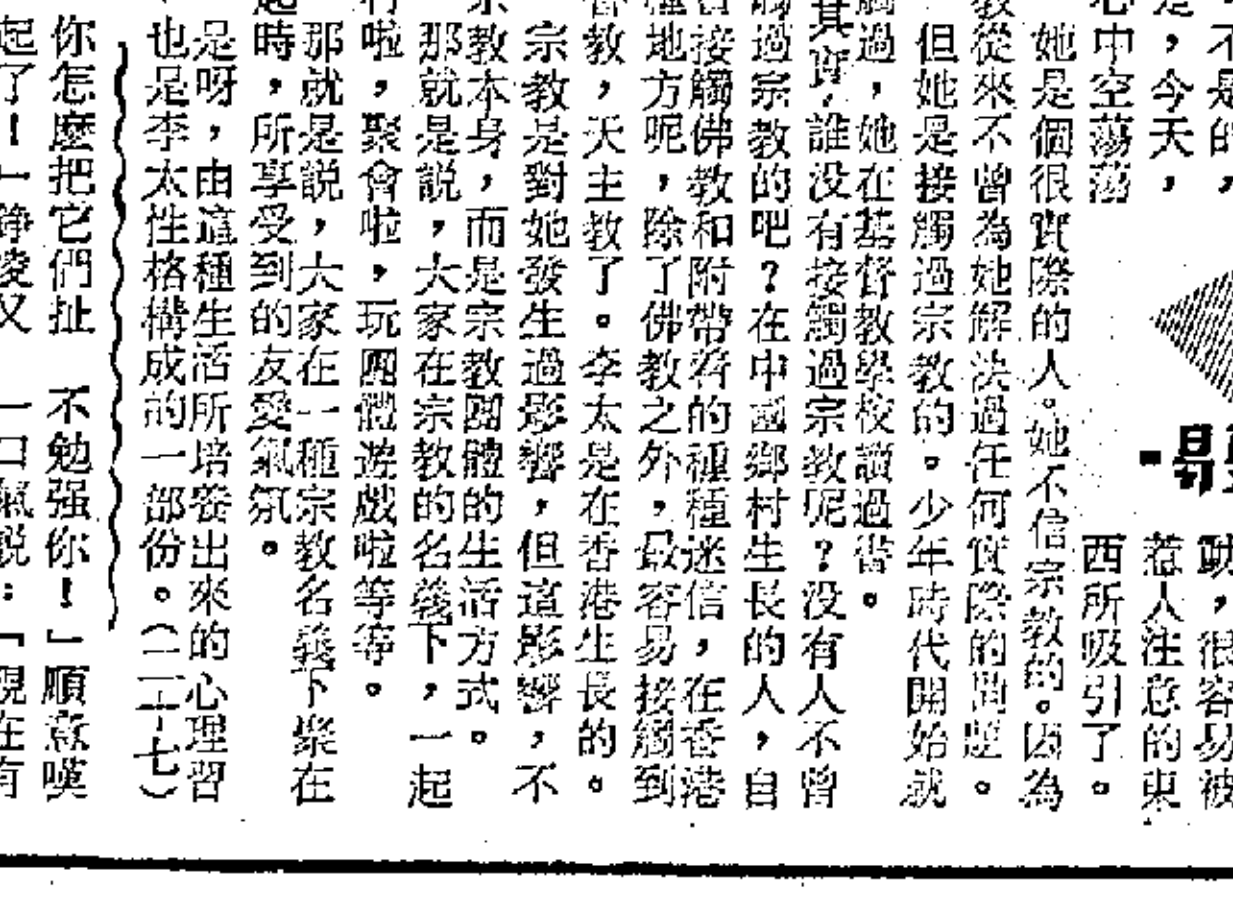 不是的，
是，今天，
心中空蕩蕩
動，很容易被
惹人注意的東
西所吸引了。
她是個很實際的人。她不信宗教的。因為
教從來不曾為她解決過任何實際的問題。
但她是接觸過宗教的。少年時代開始就
觸過，她在基督教學校讀過書。
其實，誰没有接觸過宗教呢？没有人不曾
觸過宗教的吧？在中國鄉村生長的人，自
接觸佛教和附帶着的種種迷信，在香港
地方呢，除了佛教之外，最容易接觸到
教，天主教了。李太是在香港生長的。
宗教是對她發生過影響，但這影響，不
宗教本身，而是宗教團體的生活方式。
那就是説，大家在宗教的名義下，一起
啦，聚會啦，玩團體遊戲啦等等。
那就是説，大家在一種宗教名義下聚在
起時，所享受到的友愛氣氛。
是呀，由這種生活所培養出來的心理習
也是李太性格構成的一部份。（二二十七）
你怎麽把它們扯　不勉强你！」順意嘆
起了！」錚凌又　一口氣説：「現在有